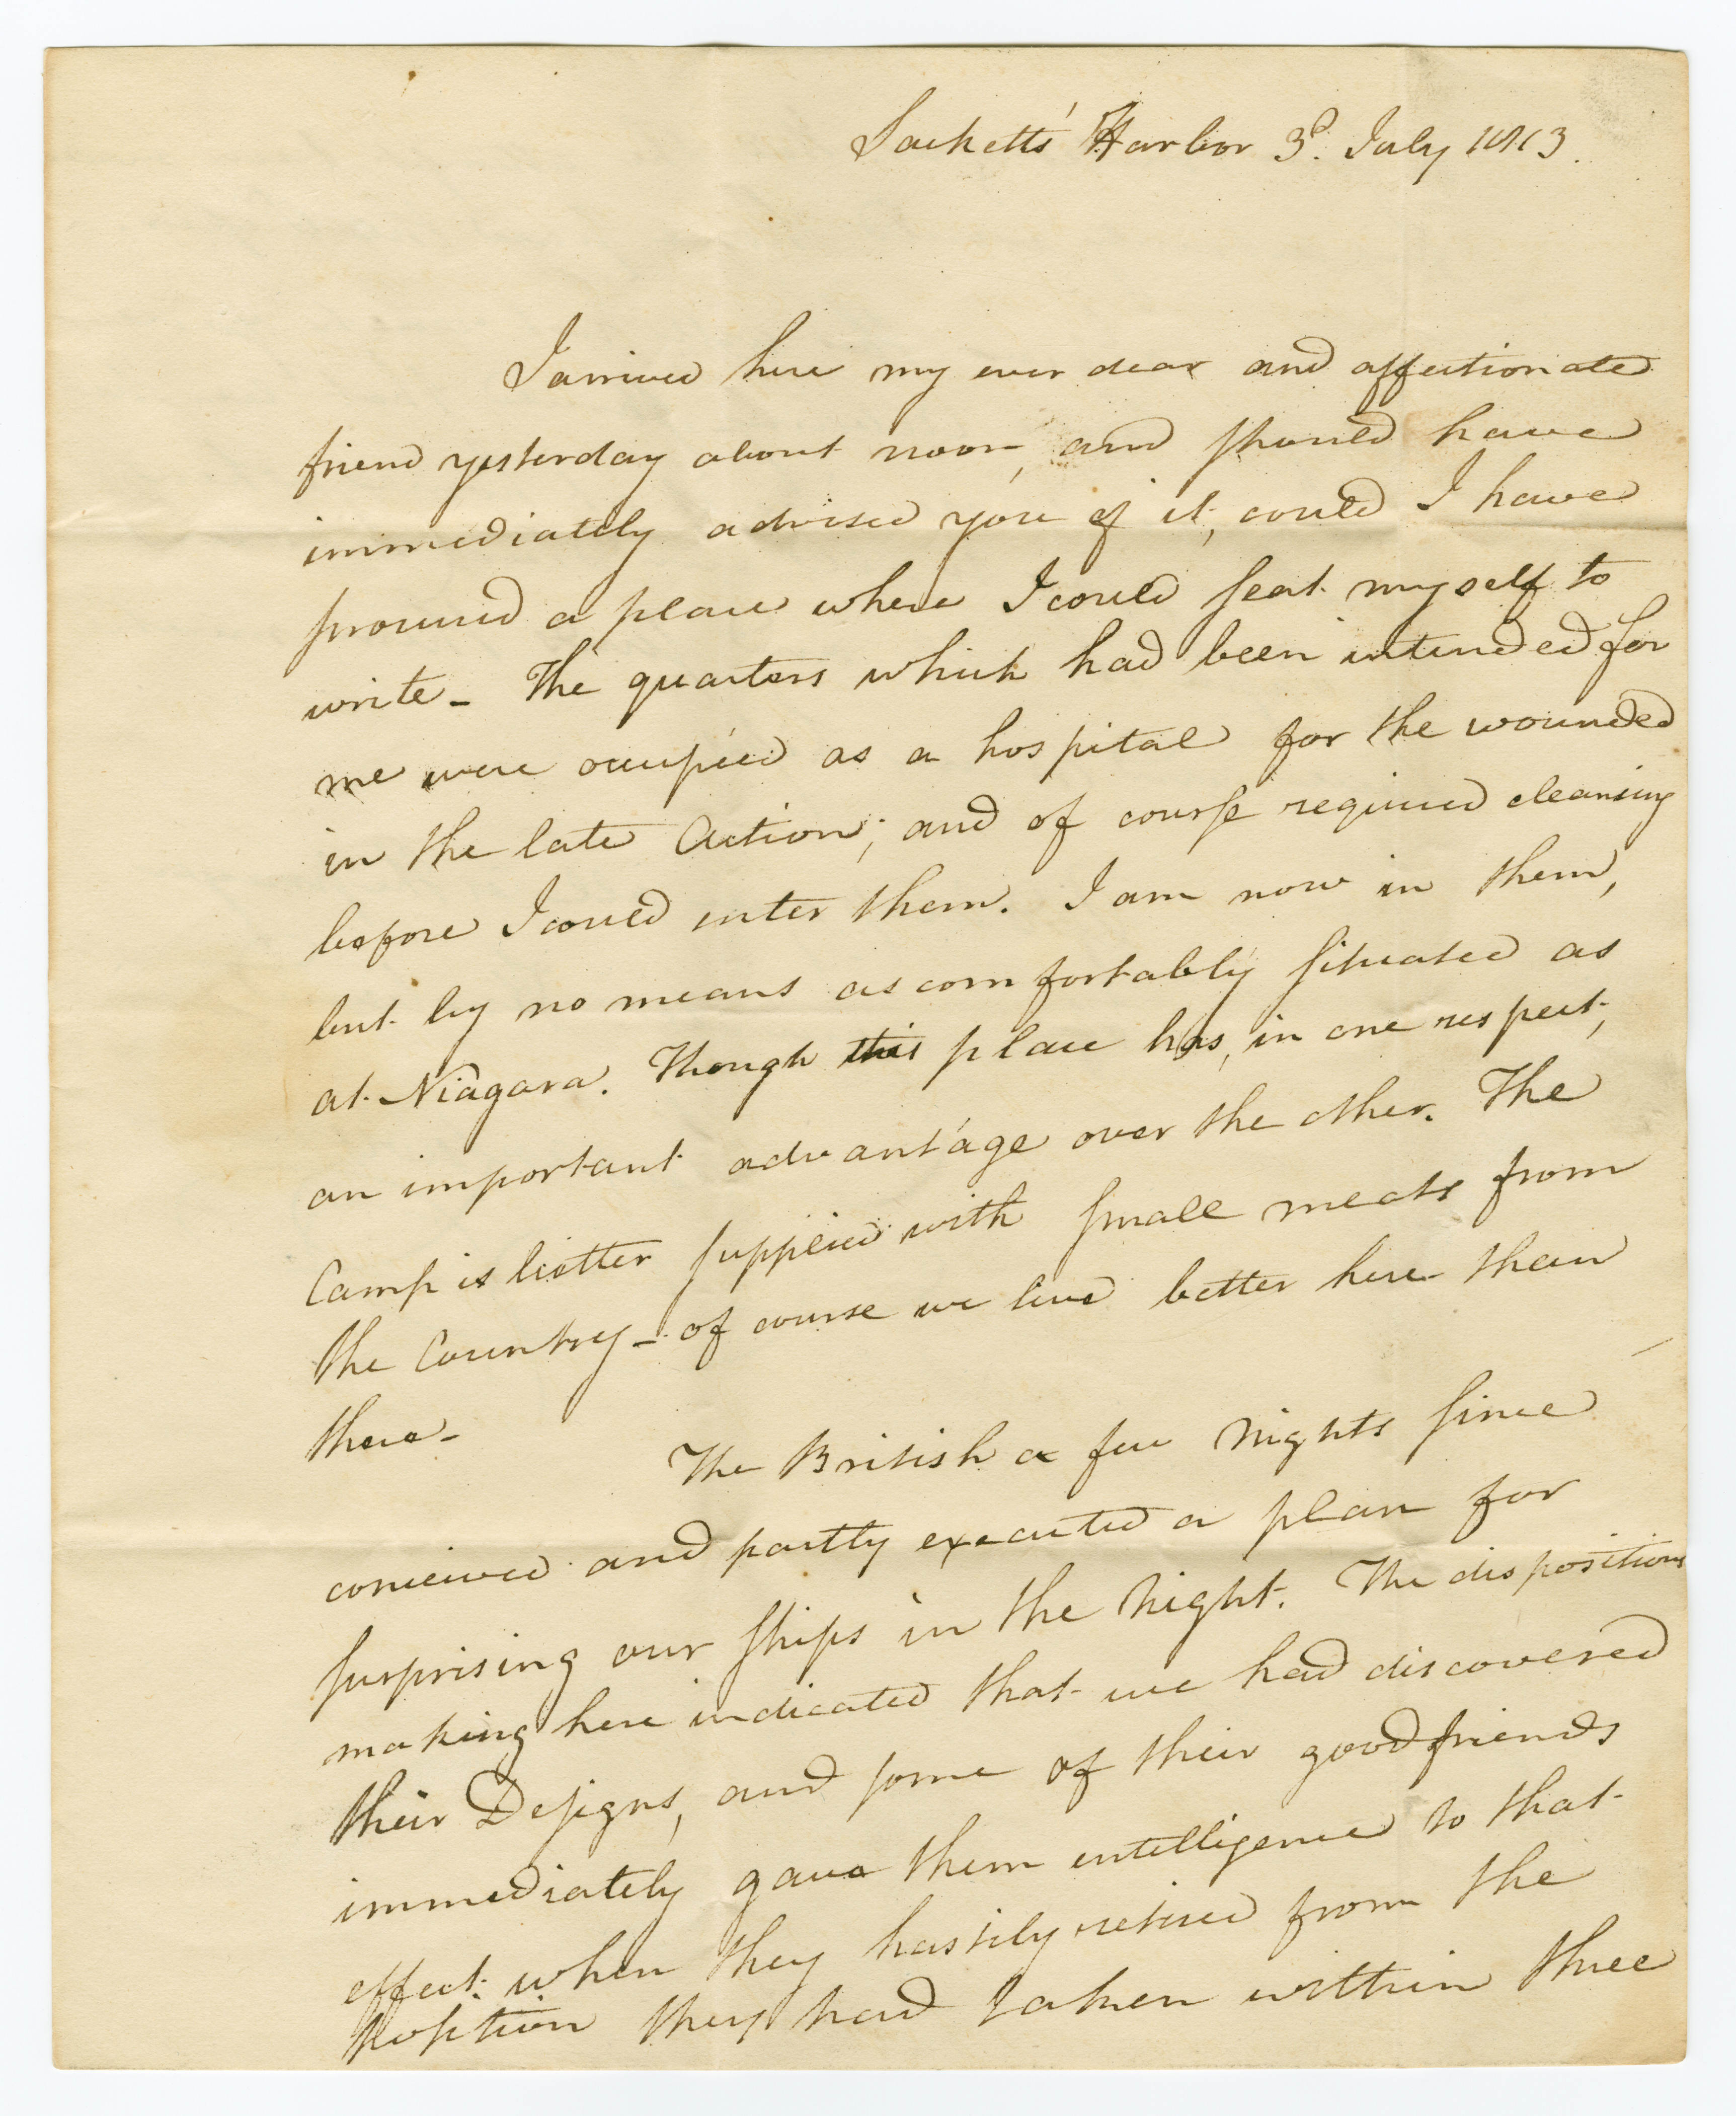 Sacketts' Harbor 3d. July 1813.
I arrived here my ever dear and affectionate
friend yesterday about noon, and should have
immediately advised you of it, could I have
procured a place where I could seat myself to
write - The quarters which had been intended for
me were occupied as a hospital for the wounded
in the late Action; and of course required cleansing
before I could enter them. I am now in them,
but by no means as comfortably situated as
at Niagara. Though this place has, in one respect,
an important advantage over the other. The
Camp is better supplied with small meats from
the Country - of course we live better here than
there -
The British a few Nights since
conceived and partly executed a plan for
surprising our ships in the Night. The dispositions
making here indicated that we had discovered
their Designs, and some of their good friends
immediately gave them intelligence to that
effect. when they hastily retired from the
position they had taken within three